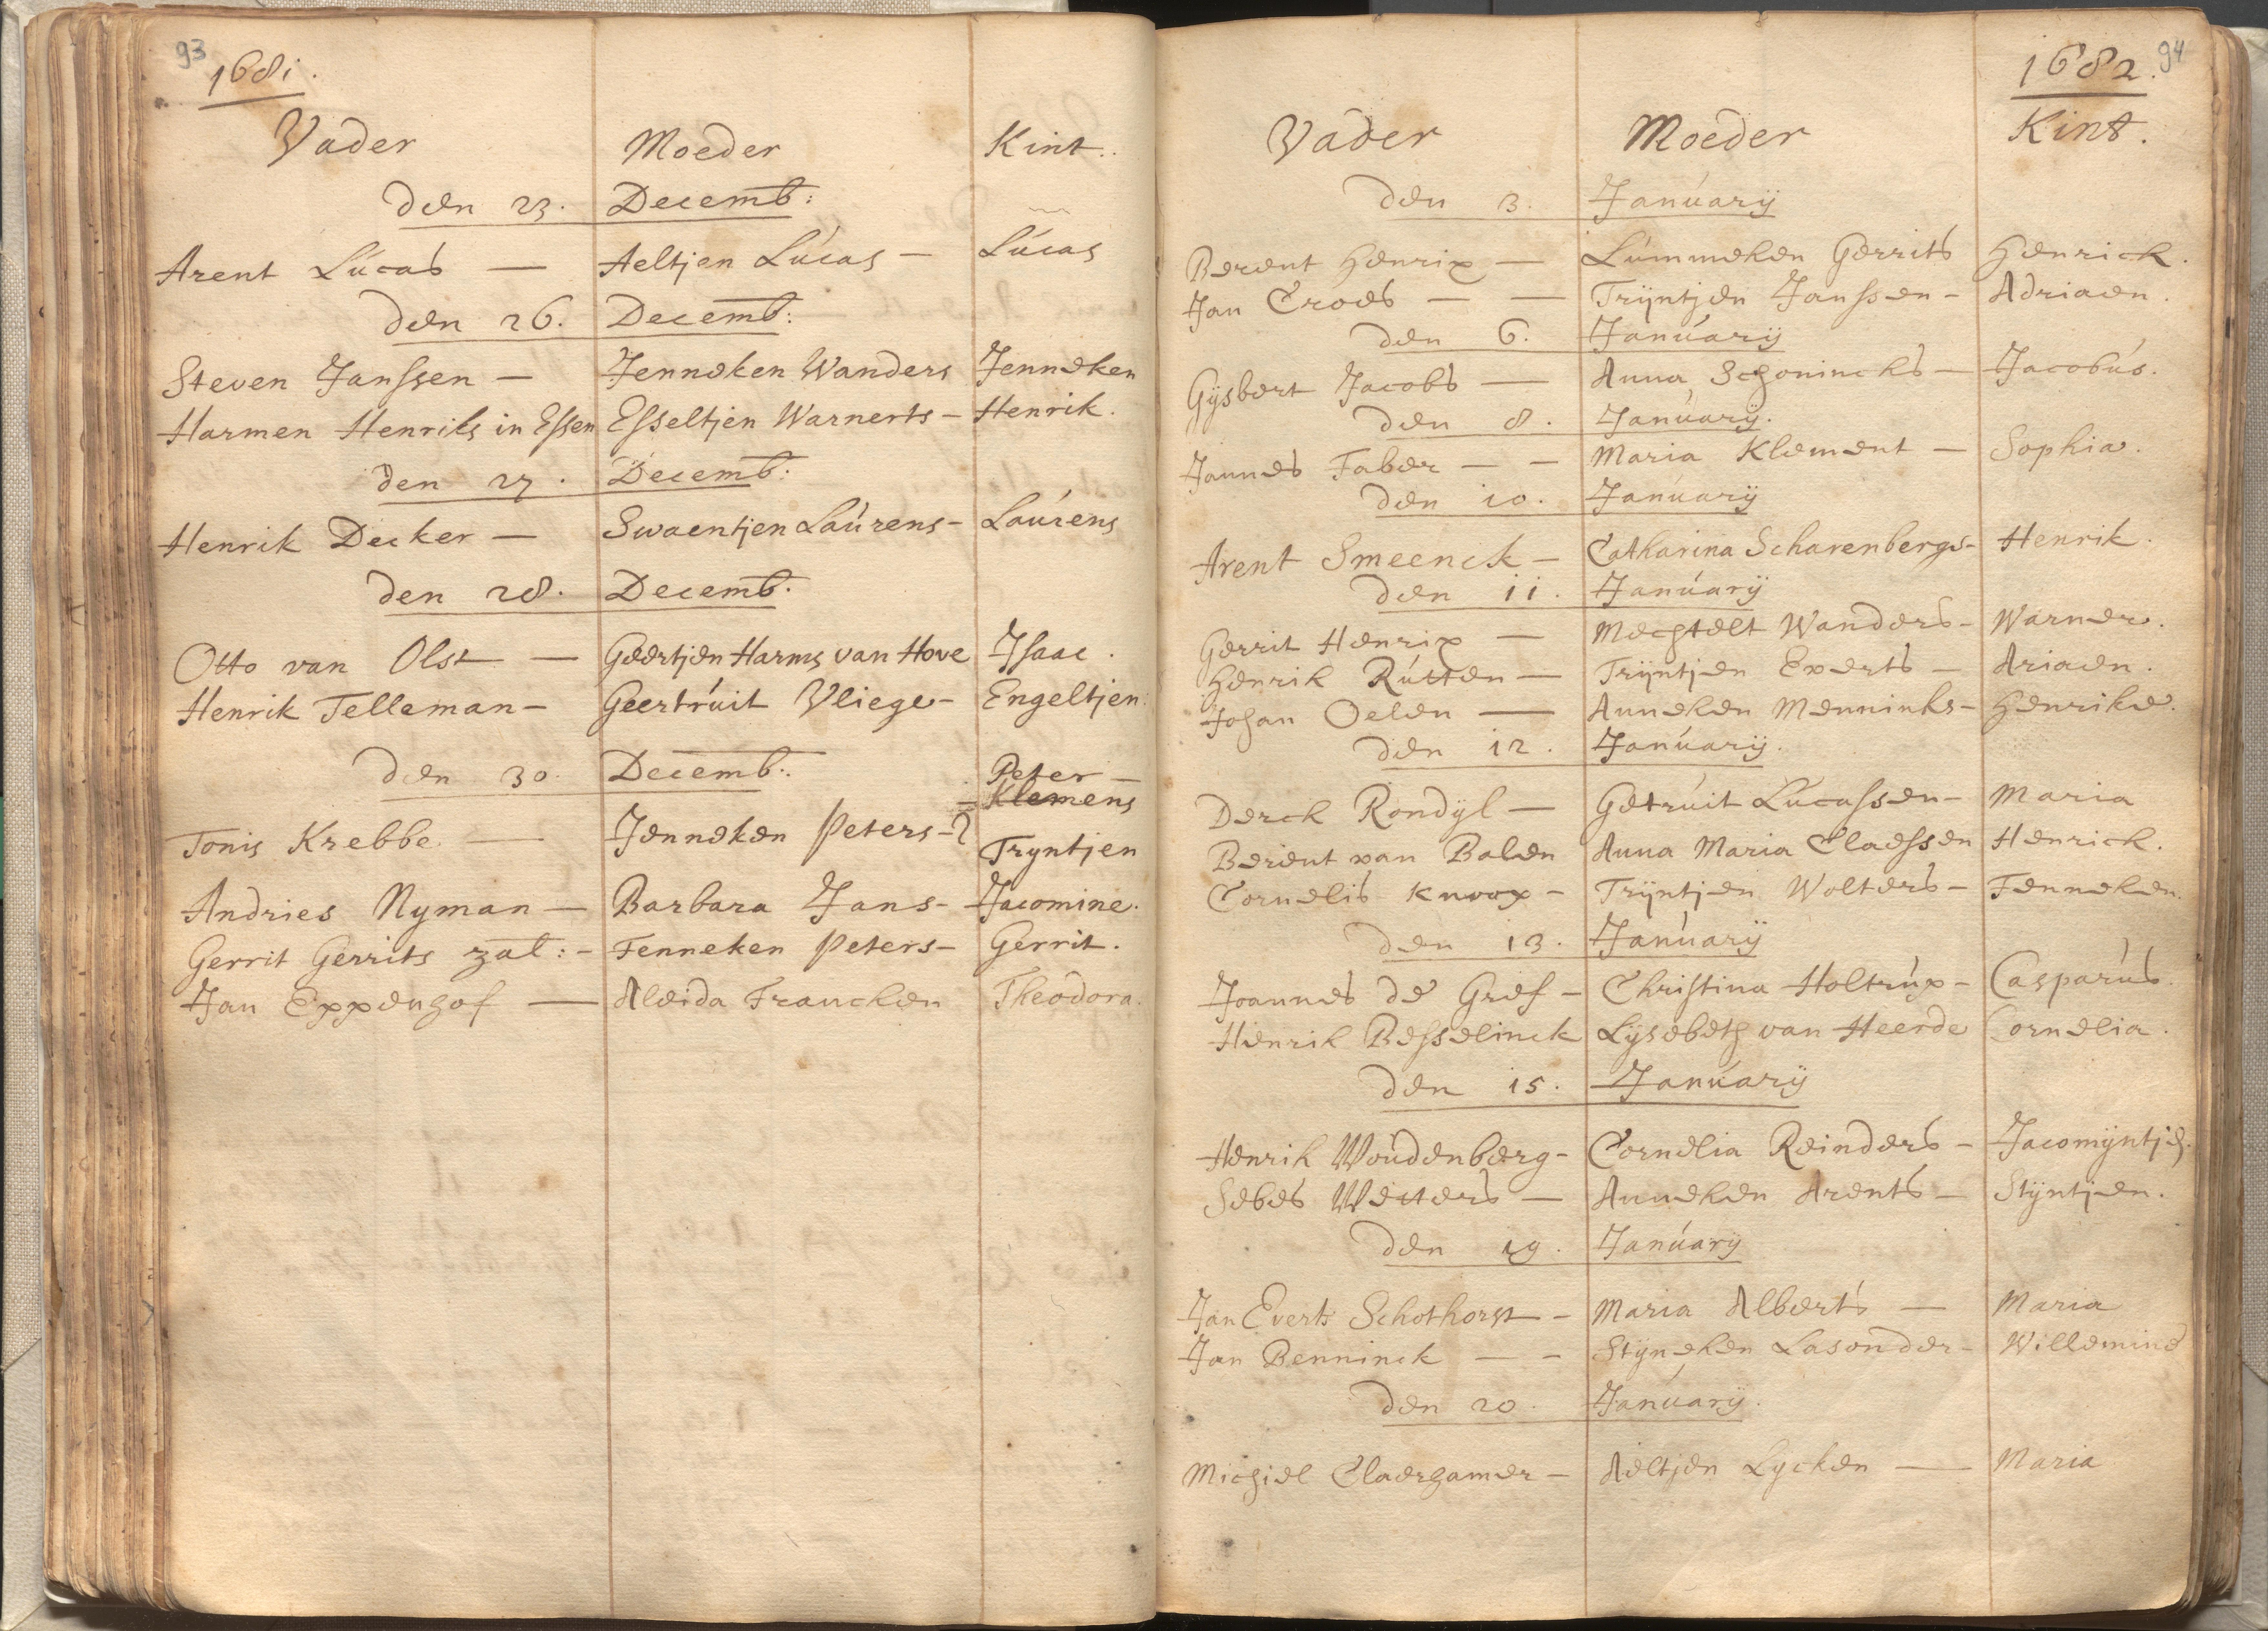 93
1681.
Vader Moeder Kint.
den 23. Decemb:
Arent Lúcas — Aeltjen Lúcas — Lúcas
den 26. Decemb:
Steven Janssen — Jenneken Wanders Jenneken
Harmen Henriks in Essen Esseltjen Warnerts - Henrik.
den 27. Decemb:
Henrik Decker — Swaentjen Laúrens - Laúrens
den 28. Decemb:
Otto van Olst — Geertjen Harms van Hove Isaac.
Henrik Telleman - Geertrúit Vliege - Engeltjen
den 30. Decemb:
Peter —
Klemens
Tonis Krebbe — Jenneken Peters -
Tryntjen
Andries Nyman — Barbara Jans - Jacomine.
Gerrit Gerrits zal: - Fenneken Peters - Gerrit.
Jan Eppenhof — Aleida Francken Theodora.
94
1682.
Vader Moeder Kint.
den 3. Janúarij
Berent Henrix — Lúmmeken Gerrits Henrick.
Jan Croes — — Trijntjen Janssen - Adriaen.
den 6. Janúarij
Gijsbert Jacobs — Anna Schonincks — Jacobús.
den 8. Janúarij.
Jannes Faber — — Maria Klement — Sophia.
den 10. Janúarij
Arent Smeenck — Catharina Scharenbergs - Henrik.
den 11. Janúarij
Gerrit Henrix — Mechtelt Wanders - Warner.
Henrik Rútten — Trijntjen Everts — Ariaen.
Johan Oelen — Anneken Menninks - Henrike.
den 12. Janúarij.
Derck Rondijl — Getrúit Lúcassen - Maria
Berent van Balen Anna Maria Claessen Henrick.
Cornelis Knoop - Trijntjen Wolters - Fenneken.
den 13. Janúarij
Joannes de Gref - Christina Holtrúp - Casparús.
Henrik Besselinck Lijsebeth van Heerde Cornelia.
den 15. Janúarij
Henrik Woúdenberg - Cornelia Reinders - Jacomijntje.
Sebes Welters — Anneken Arents — Stijntjen.
den 19. Janúarij
Jan Everts Schothorst - Maria Alberts — Maria
Jan Benninck — - Stijneken Lasonder - Willemine
den 20. Janúarij.
Michiel Claerhamer - Aeltjen Lycken — Maria